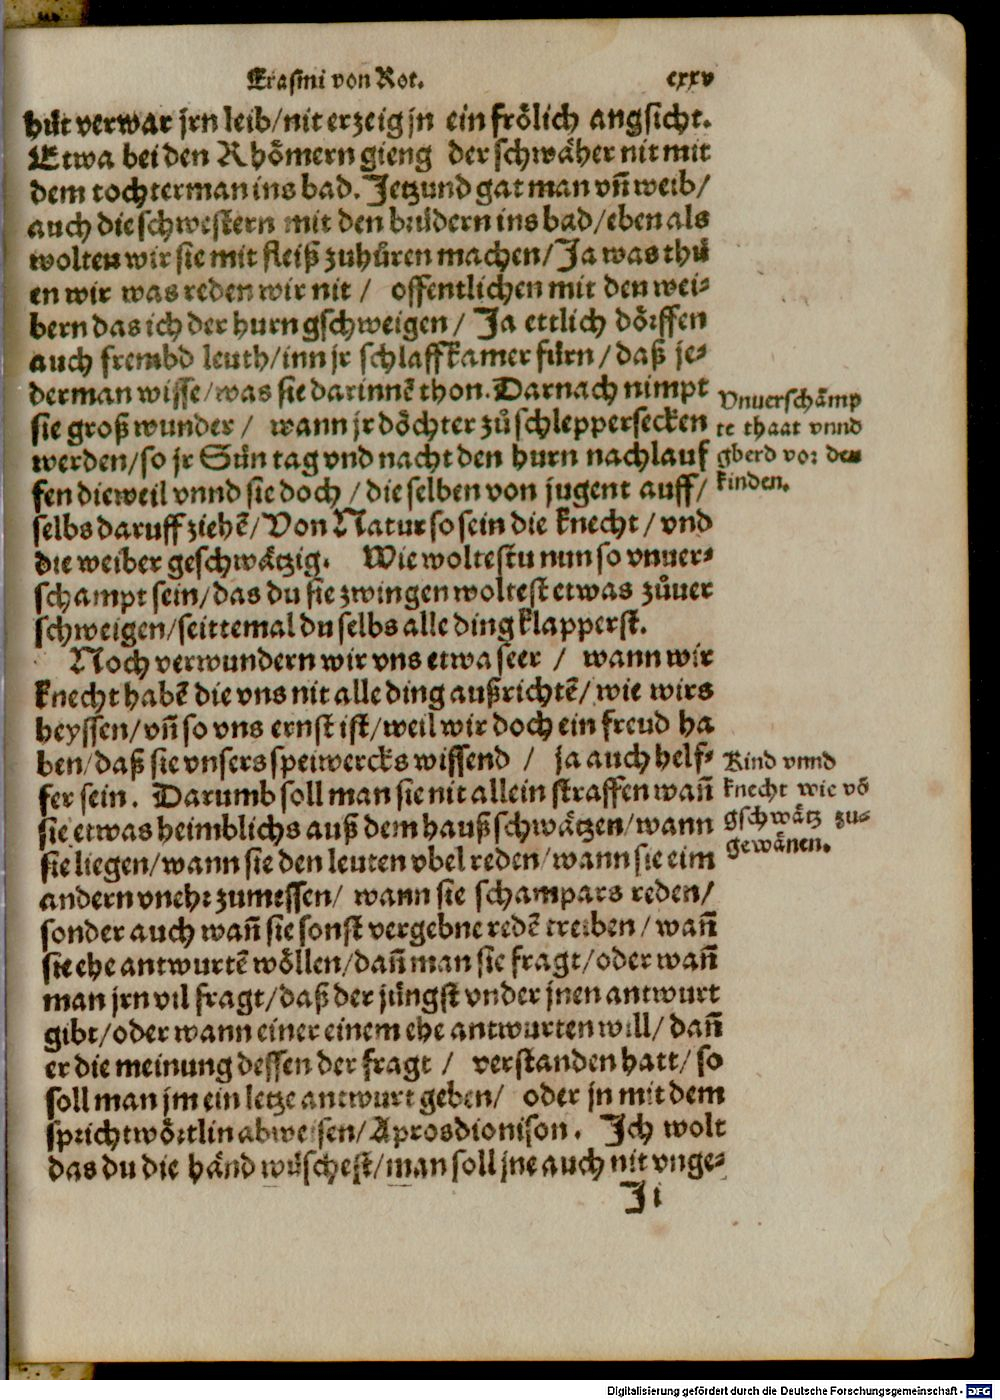 Erasmi von Rot. cxxv
hüt verwar jrn leib/nit erzeig jn ein frölich angsicht.
Etwa bei den Rhömern gieng der schwäher nit mit
dem tochterman ins bad. Jetzund gat man vñ weib/
auch die schwestern mit den brüdern ins bad/eben als
wolten wir sie mit fleiß zuhůren machen/Ja was thů
en wir was reden wir nit / offentlichen mit den wei-
bern das ich der hurn gschweigen / Ja ettlich dörffen
auch frembd leuth/inn jr schlaffkamer fürn/daß je-
derman wisse/was sie darinnẽ thon. Darnach nimpt
sie groß wunder / wann jr döchter zů schleppersecken
werden/so jr Sün tag vnd nacht den hurn nachlauf
fen dieweil vnnd sie doch / die selben von jugent auff/
selbs daruff ziehẽ/Von Natur so sein die knecht/vnd
die weiber geschwätzig. Wie woltestu nun so vnuer-
schampt sein/das du sie zwingen woltest etwas zůuer
schweigen/seittemal du selbs alle ding klapperst.
Vnuerschämp
te thaat vnnd
gberd vor den
kinden.
Noch verwundern wir vns etwa seer / wann wir
knecht habẽ die vns nit alle ding außrichtẽ/wie wirs
heyssen/vñ so vns ernst ist/weil wir doch ein freud ha
ben/daß sie vnsers speiwercks wissend / ja auch helf-
fer sein. Darumb soll man sie nit allein straffen wañ
sie etwas heimblichs auß dem hauß schwätzen/wann
sie liegen/wann sie den leuten vbel reden/wann sie eim
andern vnehr zumessen/ wann sie schampars reden/
sonder auch wañ sie sonst vergebne redẽ treiben/wañ
sie ehe antwurtẽ wöllen/dañ man sie fragt/oder wañ
man jrn vil fragt/daß der jüngst vnder jnen antwurt
gibt/oder wann einer einem ehe antwurten will/dañ
er die meinung dessen der fragt / verstanden hatt/so
soll man jm ein letze antwurt geben/ oder jn mit dem
sprichtwörtlin abweisen/Aprosdionison. Ich wolt
das du die händ wüschest/man soll jne auch nit vnge-
Kind vnnd
knecht wie võ
gschwätz zu-
gewänen.
Ji
Digitalisierung gefördert durch die Deutsche Forschungsgemeinschaft - DFG